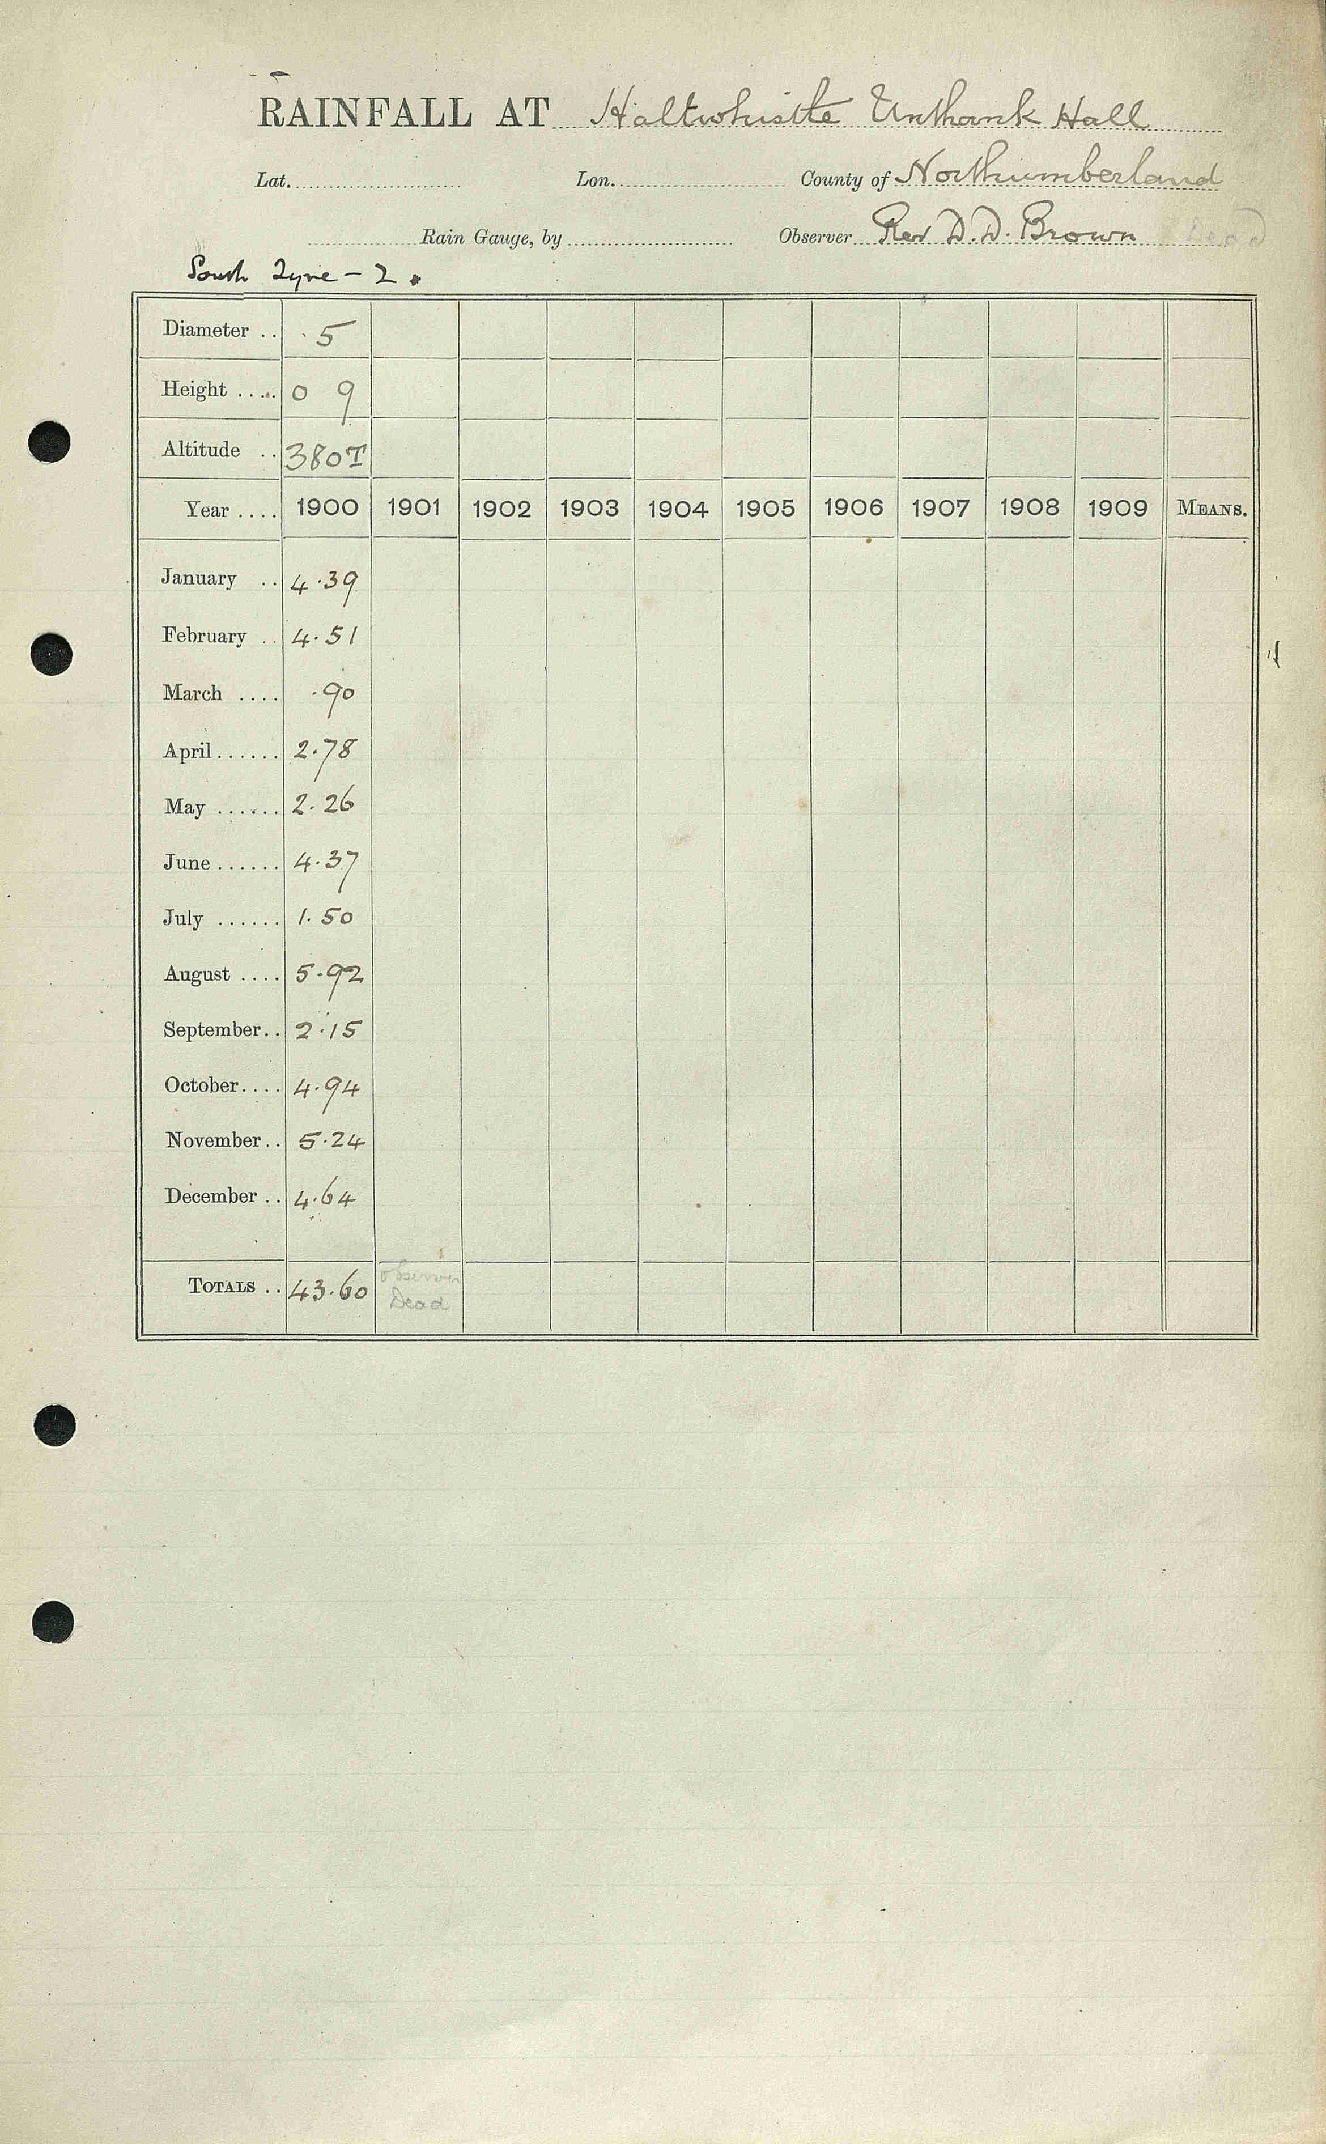 RAINFALL AT Haltwhistle Unthank Hall
Lat. Lon. County of Northumberland
Rain Gauge, by Observer Rev D. D. Brown Dead
South Tyne - 2.
Diameter .. 5
Height .... 0 9
Altitude .. 380T
Year .... 1900 1901 1902 1903 1904 1905 1906 1907 1908 1909 MEANS.
January .. 4.39
February .. 4.51
March .... .90
April ...... 2.78
May ...... 2.26
June ...... 4.37
July ...... 1.50
August .... 5.92
September.. 2.15
October.... 4.94
November.. 5.24
December .. 4.64
TOTALS .. 43.60 observer
Dead